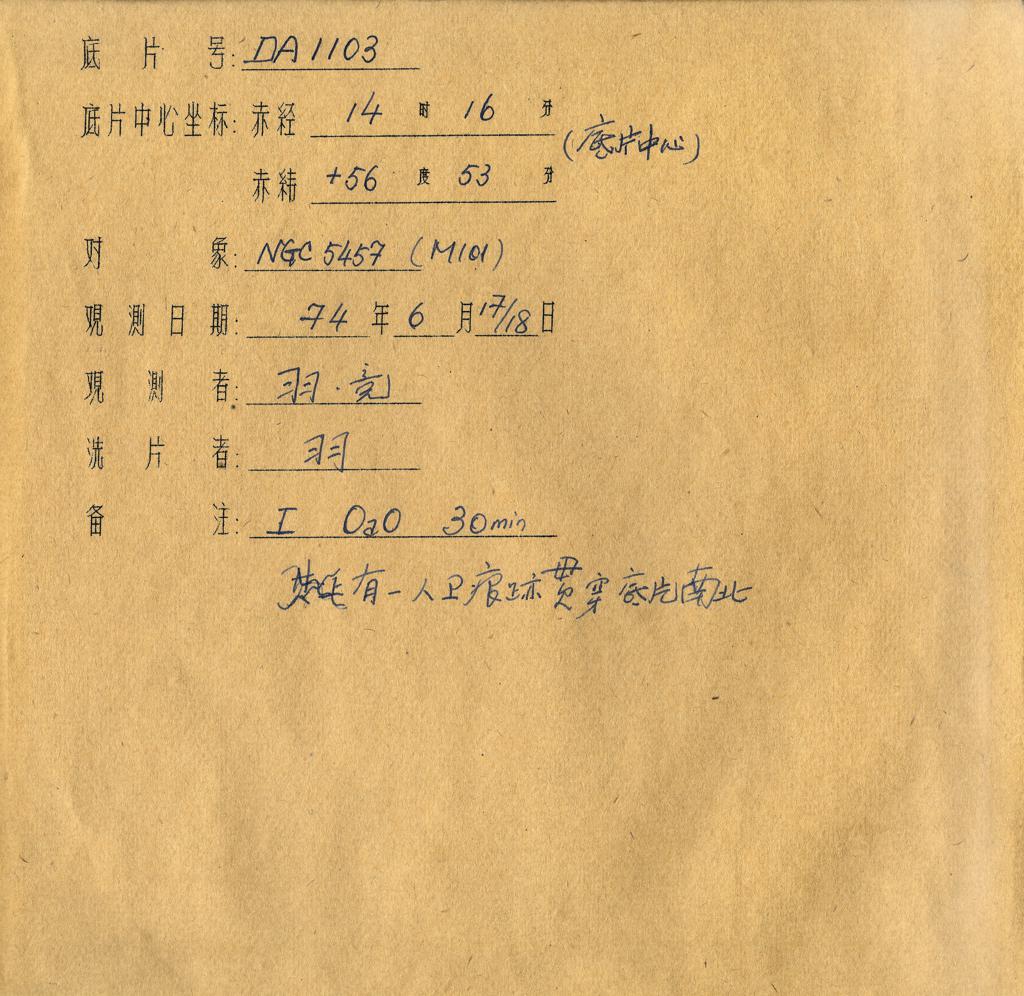 底片号: DA1103
底片中心坐标: 赤经 14 时 16 分
(底片中心)
赤纬 +56 度 53 分
对象: NGC 5457 (M101)
观测日期: 74 年 6 月 17/18 日
观测者: 羽·竞
洗片者: 羽
备注: I OaO 30min
有一人卫痕迹贯穿底片南北